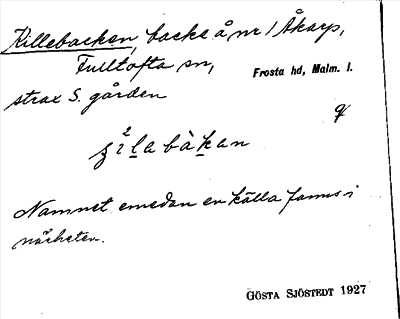 Killebacken, backe å nr 1 Åkarp,
Fulltofta sn, Frosta hd, Malm. l.
strax S. gården
2
bàkan
Namnet emedan en källa fanns i
närheten.
GÖSTA SJÖSTEDT 1927